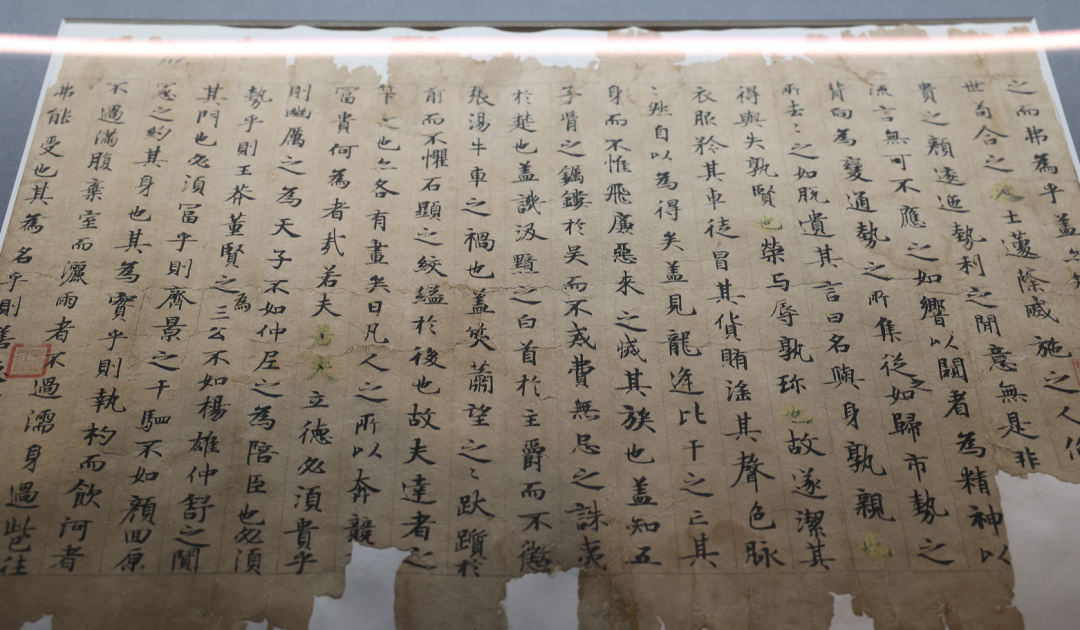 之而弗為乎盖
世苟合之士蘧蒢戚施之人俛
貴之顏逶迤勢利之間意無是非
流言無可不應之如響以闚者為精神以
背向為變通勢之所集從之如歸市勢之
所去〻之如脫遺其言曰名與身孰親也
得與失孰賢也榮与辱孰珎也故遂潔其
衣服矜其車徒冒其貨賄淫其聲色脉
〻然自以為得矣盖見龍逢比干之亡其
身而不惟飛廉惡來之滅其族也盖知五
子胥之鐲鏤於吳而不戒費無忌之誅夷
於楚也盖譏汲黯之白首於主爵而不懲
張湯牛車之禍也盖笑蕭望之〻跋躓於
前而不懼石顯之絞縊於後也故夫達者之
筭也亦各有盡矣曰凡人之所以奔競
富貴何為者哉若夫立德必須貴乎
則幽厲之為天子不如仲尼之為陪臣也必須
勢乎則王莽董賢之為三公不如楊雄仲舒之闃
其門也必須富乎則齊景之千駟不如顏回原
憲之約其身也其為實乎則執杓而飲河者
不過滿腹棄室而灑雨者不過濡身過此已往
弗能受也其為名乎則善